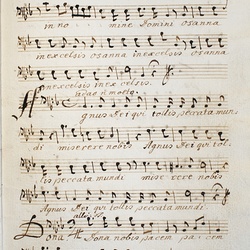 in no mine Domini osanna
in excelsis osanna in excelsis osanna
in excelsis in ex celsis.
Agnus Dei qui tollis peccata mun
di miserere nobis Agnus Dei qui tol
lis peccata mundi mise rere nobis
Agnus Dei qui tollis peccata mundi
Dona Dona nobis pacem pacem